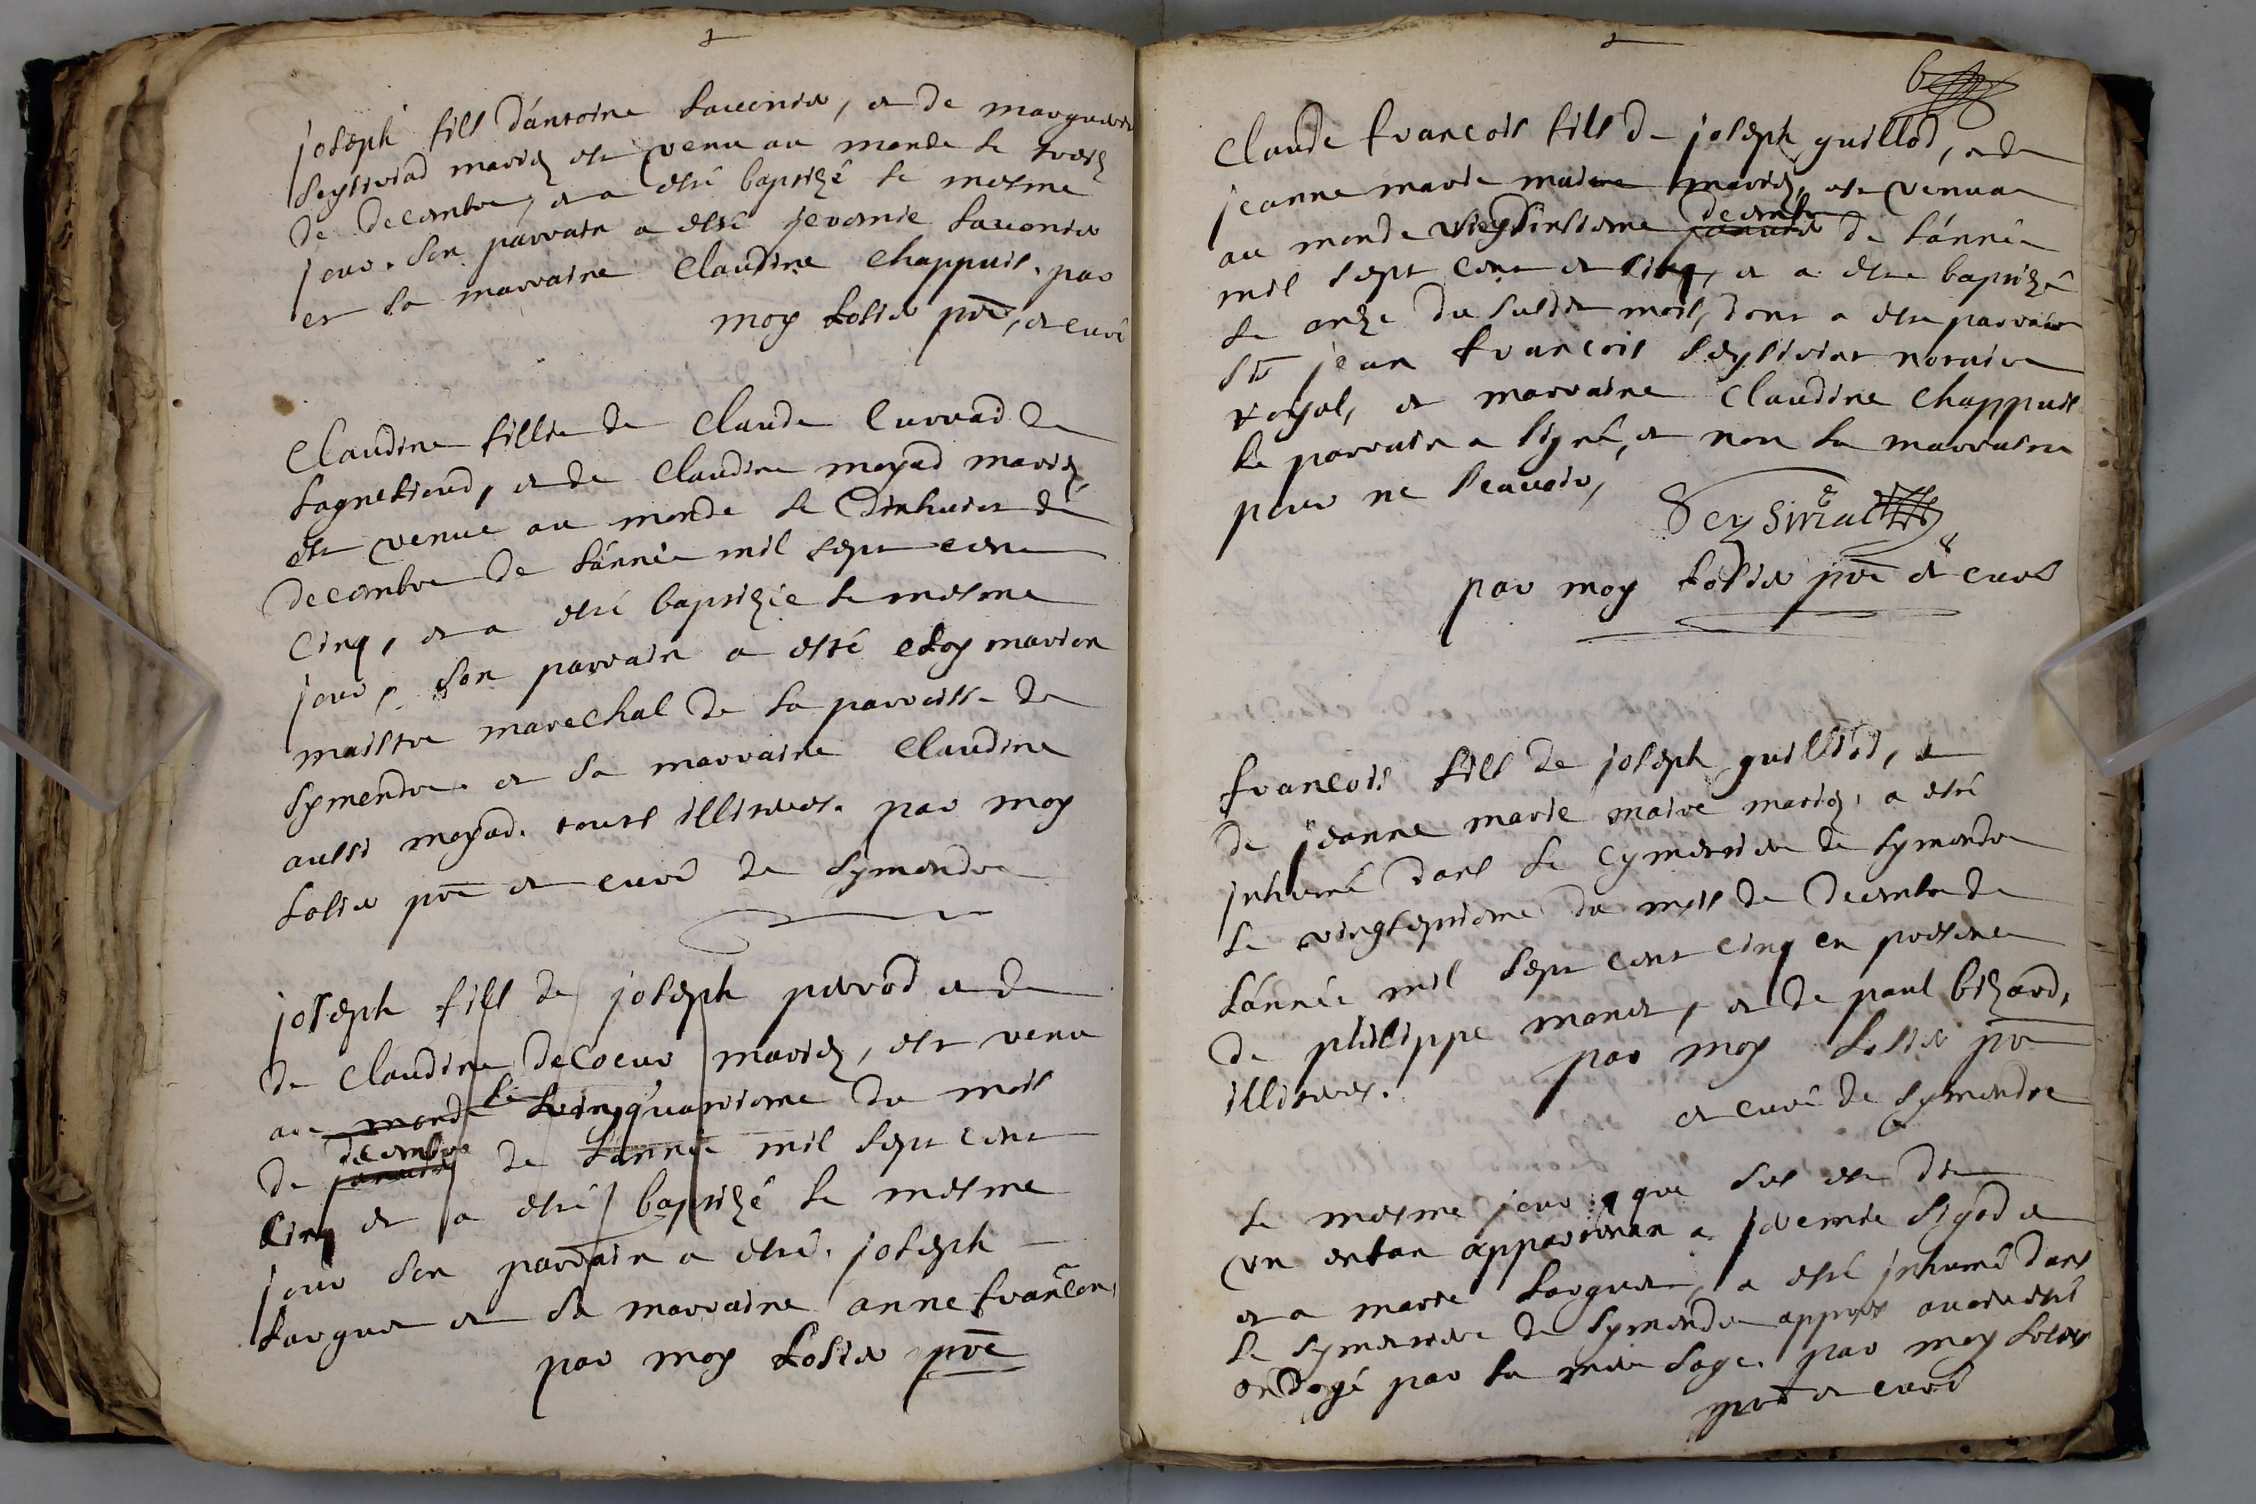 joseph fils d'antoine Lauonier, et de marguerite
Seysiriad mariez est venu au monde le treize
de decembre, et a esté baptizé le mesme
jour. son parrain a esté jeromie Lauonier
et sa marraine Claudine Chappuis. par
moy Losier pre, et curé
Claudine fillie de Claude Curvad de
Lagnetioud, et de Claudine moyad mariez
est venue au monde le dixhuict de
decembre de l'année mil sept cent
Cinq, et a esté baptizée le mesme
jour, son parrain a esté eloy marion
maistre marechal de la parroisse de
Symendre. et sa marraine Claudine
aussi moyad. touts illiteres. par moy
Losier pre et curé de Symendre
joseph fils de joseph perrod et de
de Claudine decoeur mariez, est venu
au monde le vingquatrieme du mois
de decembre de l'année mil sept cent
Cinq et a esté baptizé le mesme
jour son parrain a esté. joseph
Larguet et sa marraine anne françon,
par moy Losier pre
Claude francois fils de joseph guillod, et de
jeanne marie maire mariez, est venu
au monde decembre de l'année
mil sept cent et cinq, et a este baptizé
le onze du susdit mois, dont a este parrain
sr jean francois Seysiriat notaire
royal, et marraine Claudine Chappuis
le parrain a signé, et non la marraine
pour ne sçauoir,
Seysiriat
par moy Losier pre et curé
francois fils de joseph guilliod, et
de jeanne marie maire mariez, a esté
jnhumé dans le cymetiere de symendre
le vingtseptieme du mois de decembre de
l'année mil sept cent cinq en presence
de philippe monet, et de paul bizard,
illiteres. par moy Losier pre
et curé de symendre
le mesme jour que sus est dit
vn enfan appartenan a jeremie sigod et
et a marie Larguet, a esté jnhumé dans
le symetiere de Symendre appres auoir esté
ondoyé par la mere sage. par moy Losier
pre et curé